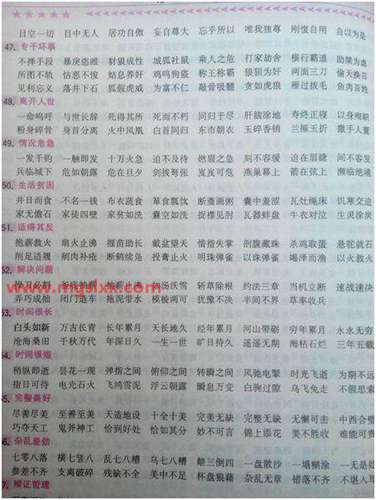 目空一切 目中无人 居功自傲 妄自尊大 忘乎所以 唯我独尊 刚愎自用 自以为是
47. 专干坏事
不择手段 暴戾恣睢 豺狼成性 城狐社鼠 乘人之危 打家劫舍 横行霸道
所图不轨 怙恶不悛 姑息养奸 鸡鸣狗盗 称王称霸 狼狈为奸 两面三刀 偷天换日
见利忘义 落井下石 狐假虎威 为富不仁 敲骨吸髓 贪如虎狼 雁过拔毛 鱼肉百姓
48. 离开人世
一命呜呼 与世长辞 死得其所 死而不朽 同归于尽 肝脑涂地 寿终正寝 以身殉职
粉身碎骨 身首分离 火中凤凰 白首同归 东市朝衣 玉碎香销 兰摧玉折
49. 情况危急
一发千钧 一触即发 十万火急 迫不及待 燃眉之急 刻不容缓 迫在眉睫 间不容发
兵临城下 危如朝露 危在旦夕 剑拔弩张 岌岌可危 燕巢幕上 箭在弦上 濒临绝境
50. 生活贫困
并日而食 不名一钱 布衣蔬食 箪食瓢饮 断齑画粥 囊中羞涩 瓦灶绳床 饥寒交迫
家无儋石 家徒四壁 家贫如洗 一贫如洗 捉襟见肘 瓦器蚌盘 牛衣对泣 生灵涂炭
51. 适得其反
抱薪救火 扇火止沸 揠苗助长 戴盆望天 惜指失掌 剖腹藏珠 杀鸡取蛋
削足适履 剜肉补疮 断鹤续凫 投膏止火 明珠弹雀 以噎废餐 渴泽而渔 以火救火
52. 解决问题
扬汤沃雪 斩草除根 约法三章 当机立断 速战速决
弄巧成拙 闭门造车 拖泥带水 模棱两可 犹豫不决 半间不界 草率收兵
53. 时间很长
白头如新 万古长青 长年累月 天长地久 经年累月 河山带砺 穷年累月 永永无穷
沧海桑田 千秋万代 年深日久 一生一世 旷日持久 遥遥无期 海枯石烂 三年五载
54. 时间很短
稍纵即逝 昙花一现 弹指之间 俯仰之间 转瞬之间 风驰电掣 时光飞逝 为期不远
指日可待 电光石火 飞鸿雪泥 浮云朝露 瞬息万变 白驹过隙 乌飞兔走
完整美好
尽善尽美 至善至美 天造地设 十全十美 完美无缺 完整无缺 无懈可击
巧夺天工 鬼斧神工 恰到好处 恰如其分 妙不可言 锦上添花 美不胜收
杂乱差劲
七零八落 横七竖八 乱七八糟 颠三倒四 一盘散沙 一塌糊涂 一无是处
参差不齐 支离破碎 残缺不全 美中不足 杯盘狼藉 杂乱无章 错落不齐 不堪入耳
辩证管理
www.mgslxx.com